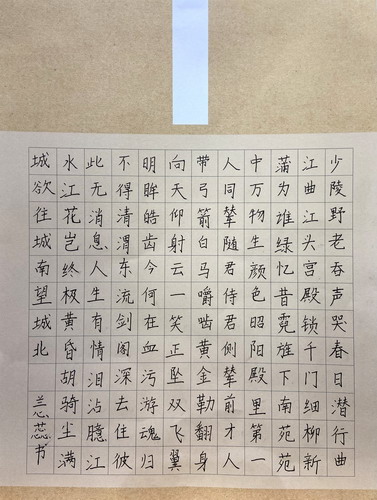 少陵野老吞声哭春日潜行曲
江曲江头宫殿锁千门细柳新
蒲为谁绿忆昔霓旌下南苑苑
中万物生颜色昭阳殿里第一
人同辇随君侍君侧辇前才人
带弓箭白马嚼啮黄金勒翻身
向天仰射云一笑正坠双飞翼
明眸皓齿今何在血污游魂归
不得清渭东流剑阁深去住彼
此无消息人生有情泪沾臆江
水江花岂终极黄昏胡骑尘满
城欲往城南望城北
书